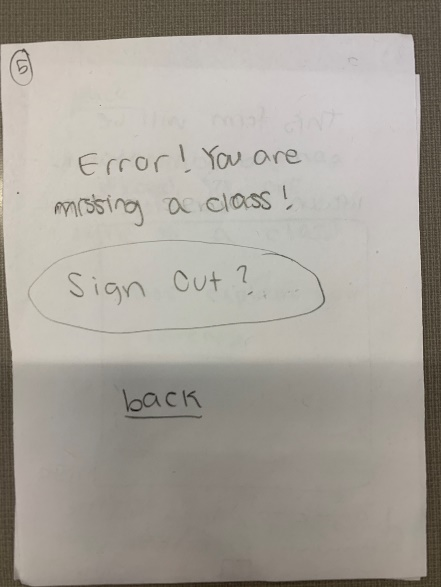 5
Error! You are
missing a class!
Sign Out?
back